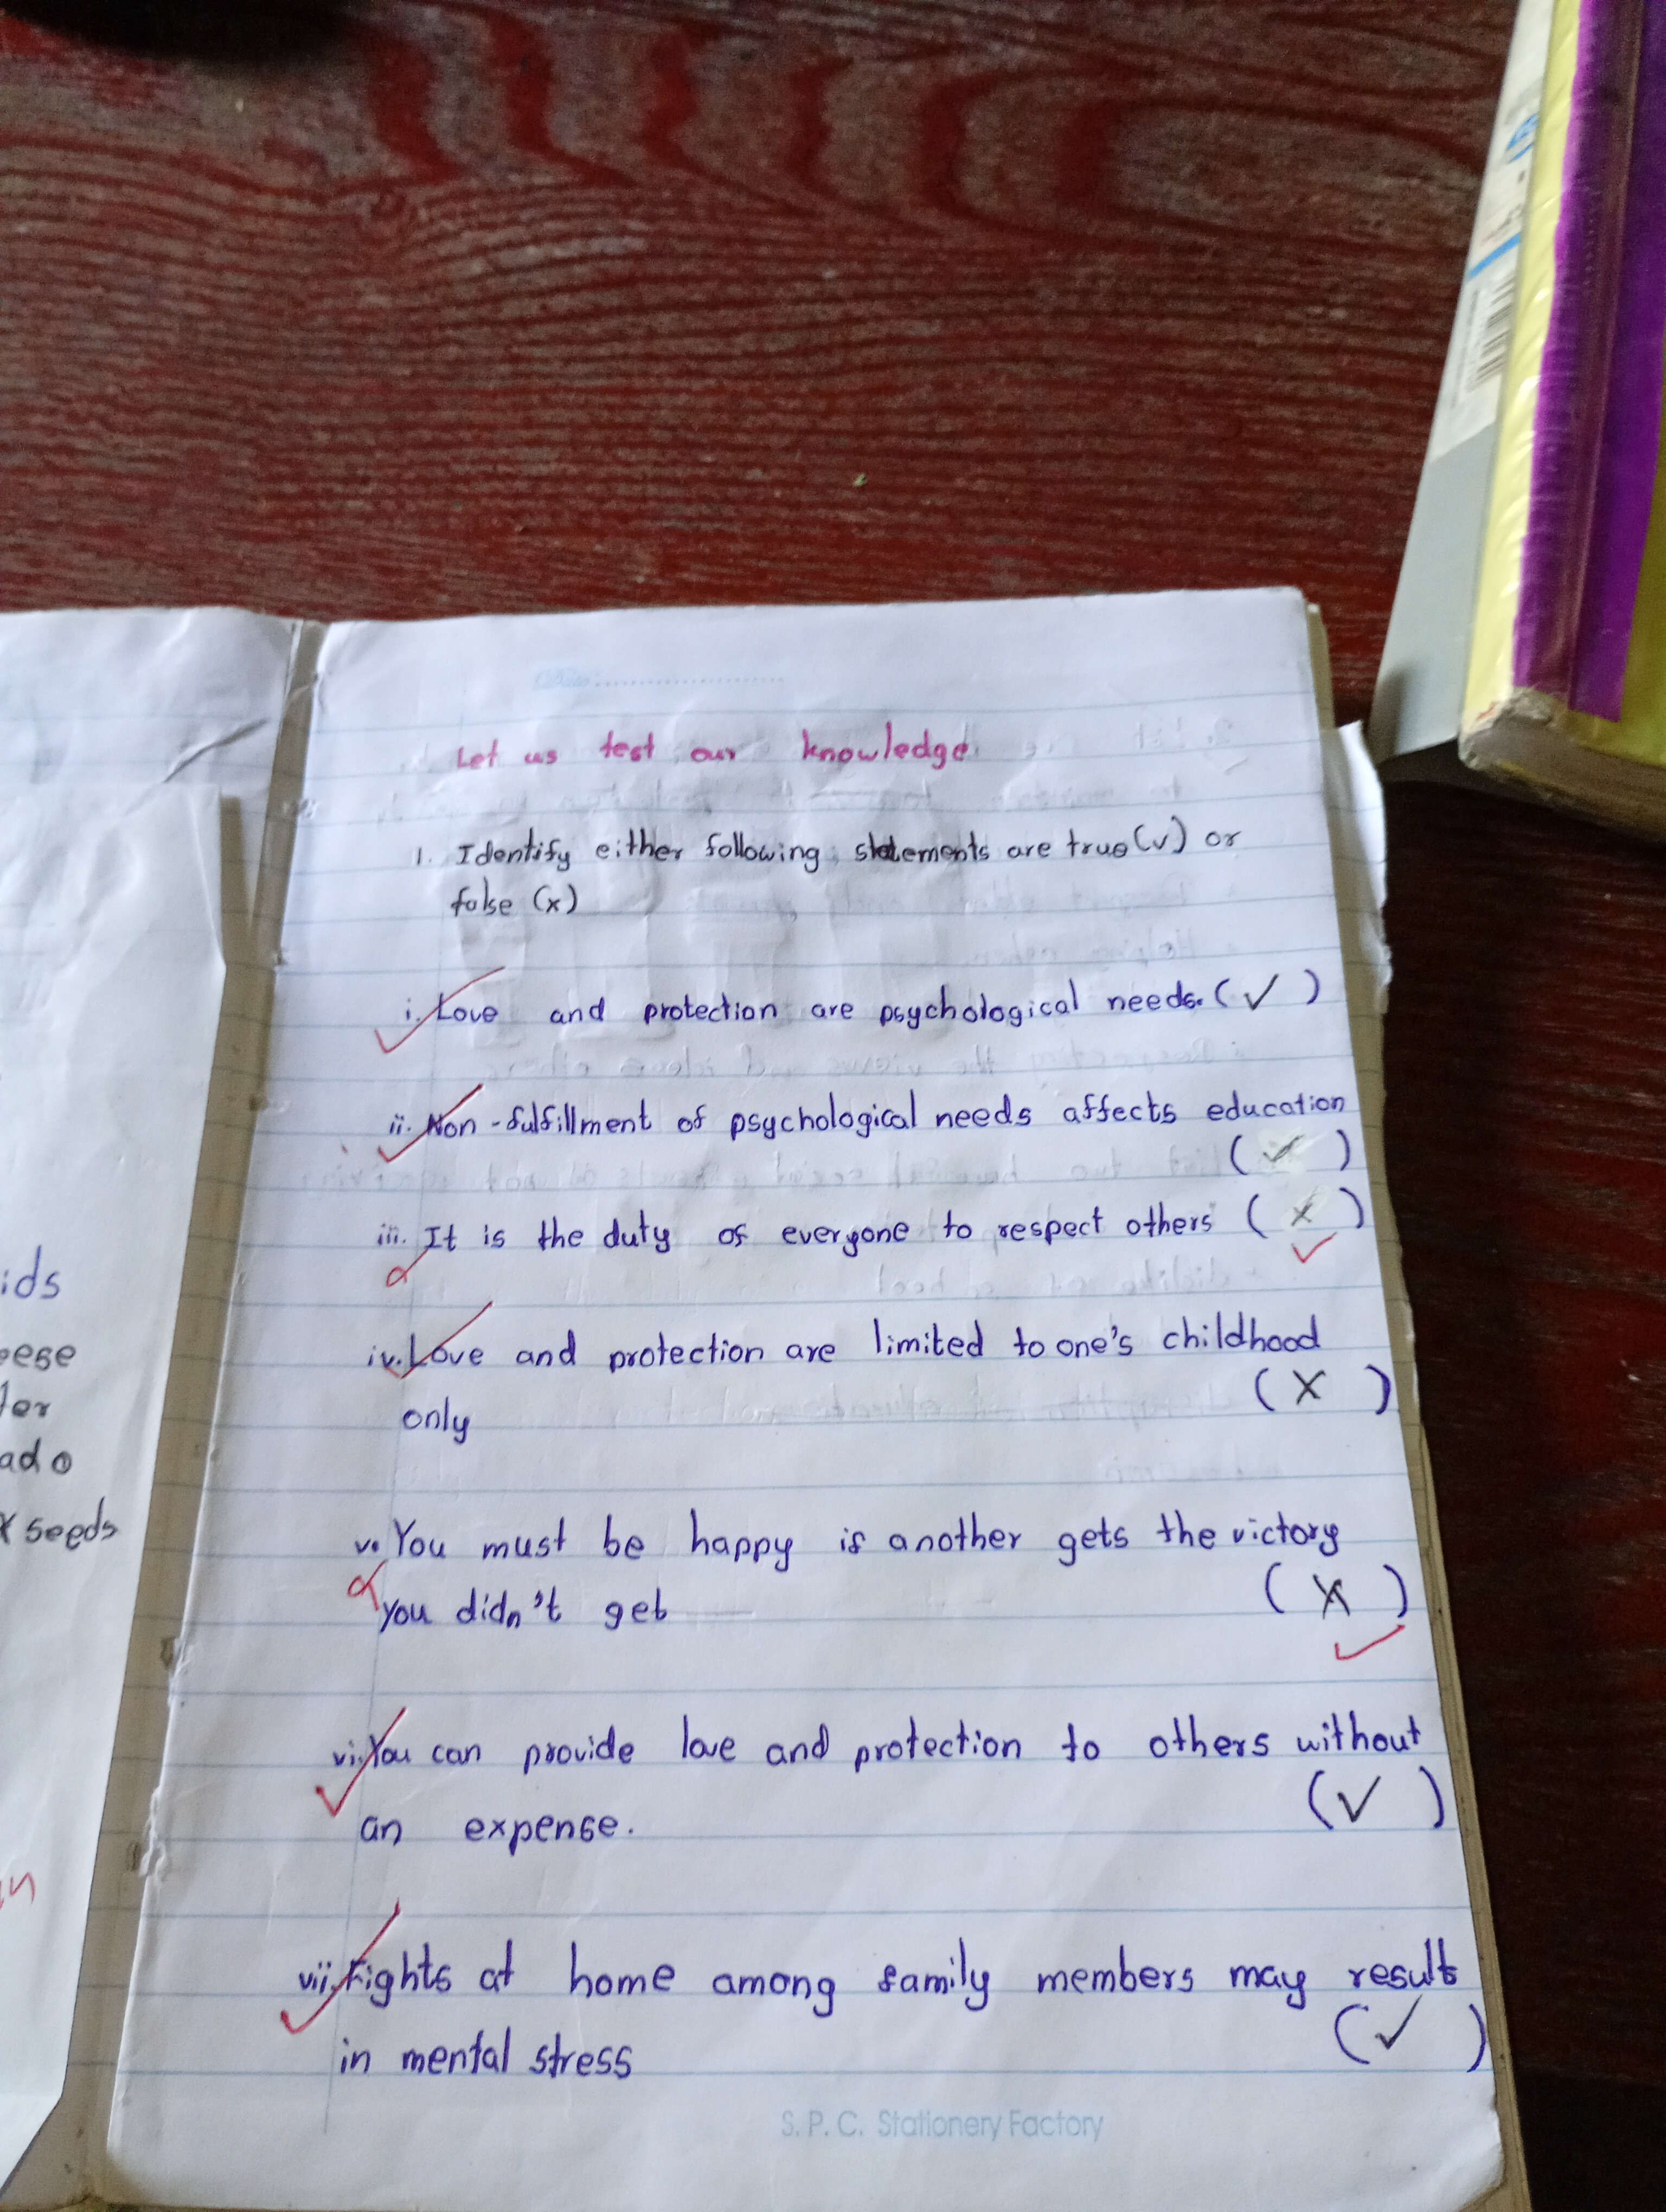 Date......................
Let us test our knowledge.
1. Identify either following statements are true (✓) or
false (x)
i. Love and protection are psychological needs. (✓)
ii. Non-fulfillment of psychological needs affects education
(✓)
iii. It is the duty of everyone to respect others (x)
iv. Love and protection are limited to one's childhood
(X)
only
v. You must be happy if another gets the victory
you didn't get (X)
vi. You can provide love and protection to others without
(✓)
an expense.
vii. Fights at home among family members may result
(✓)
in mental stress
S. P. C. Stationery Factory
ids
ese
ter
ado
x seeds